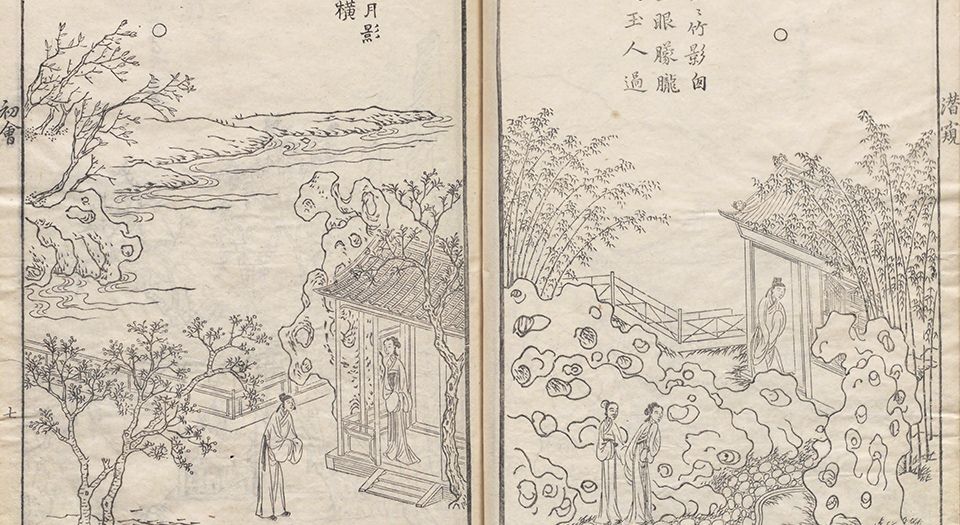 潛窺
竹影
眼朦朧
玉人過
月影
橫
初會
七